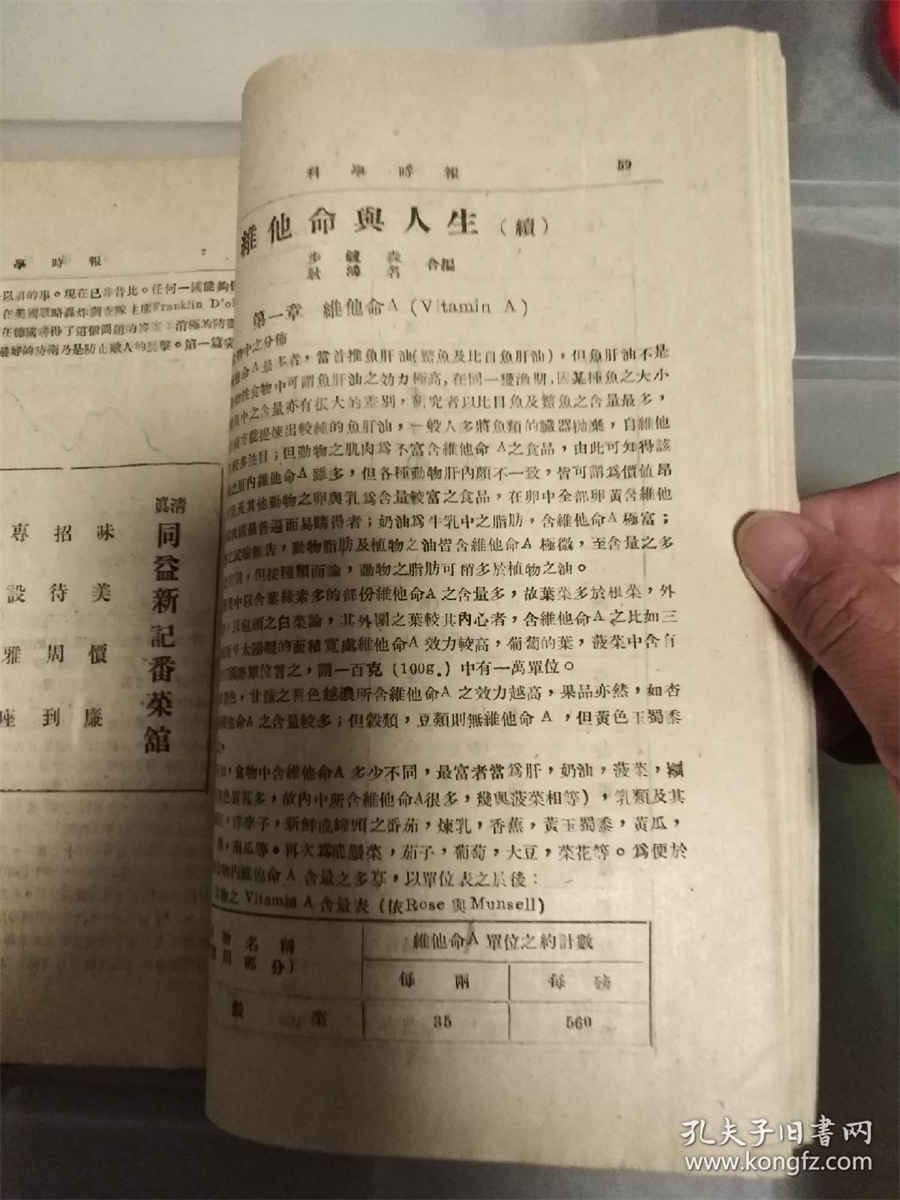 科學時報 59
維他命與人生（續）
合編
第一章 維他命A (Vitamin A)
物中之分佈
命A最多者，當首推魚肝油(鱉魚及比目魚肝油)，但魚肝油不是
物性食物中可謂魚肝油之効力極高，在同一獲漁期，因某種魚之大小
中之含量亦有很大的差別，研究者以比目魚及鱉魚之含量最多，
提煉出較純的魚肝油，一般人多將魚類的臟器拋棄，自維他
較多注目；但動物之肌肉爲不富含維他命A之食品，由此可知得該
之肝內維他命A雖多，但各種動物肝內頗不一致，皆可謂爲價值昂
及其他動物之卵與乳爲含量較富之食品，在卵中全部卵黃含維他
最普遍而易購得者；奶油爲牛乳中之脂肪，含維他命A極富；
之試驗報告，動物脂肪及植物之油皆含維他命A極微，至含量之多
，但按種類而論，動物之脂肪可稍多於植物之油。
中以含葉綠素多的部份維他命A之含量多，故葉菜多於根菜，外
之白菜論，其外圍之葉較其內心者，含維他命A之比如三
太陽曬的面積寬處維他命A效力較高，葡萄的葉，菠菜中含有
國際單位署之，謂一百克(100g.)中有一萬單位。
色，甘藷之黃色越濃所含維他命A之效力越高，果品亦然，如杏
維他命A之含量較多；但穀類，豆類則無維他命A，但黃色玉蜀黍
，食物中含維他命A多少不同，最富者當爲肝，奶油，菠菜，
，故內中所含維他命A很多，幾與菠菜相等)，乳類及其
，洋李子，新鮮或罐頭之番茄，煉乳，香蕉，黃玉蜀黍，黃瓜，
，南瓜等。再次爲龍鬚菜，茄子，葡萄，大豆，菜花等。爲便於
物內維他命A含量之多寡，以單位表之於後：
物之Vitamin A含量表(依Rose與Munsell)
物名稱 維他命A單位之約計數
用部分) 每兩 每磅
菜 35 560
學時報 7
以前的事。現在已非昔比。任何一國能夠
在美國戰略轟炸調查隊主席Franklin D'ol
在德國尋得了這個問題的答案：消極的防
最好的防衛乃是防止敵人的襲擊。第一篇
清眞
同益新記番菜舘
味美價廉
招待周到
專設雅座
孔夫子旧书网
www.kongfz.com